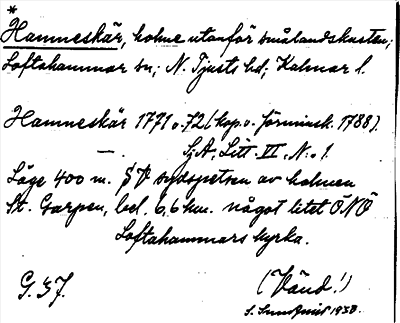 *
Hamneskär, holme utanför smålandskusten;
Loftahammar sn; N. Tjusts hd; Kalmar l.
Hamneskär 1771 o. 72 (kop. o. förminsk. 1788).
— . Sj.A. Litt. VI, N:o 1.
Läge 400 m. § V sydspetsen av holmen
St. Garpen, bel. 6,6 km. något litet ÖNÖ
Loftahammars kyrka.
G. 37. (Vänd!)
S. Sundqvist 1938.